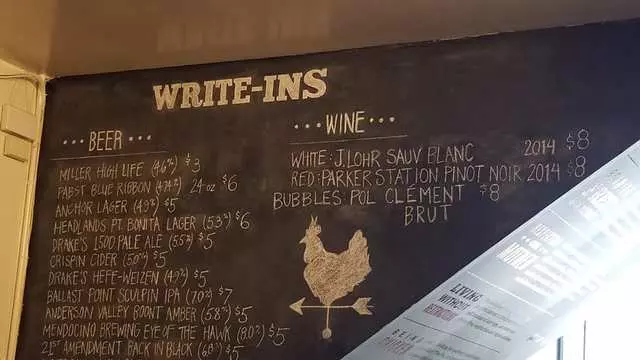 WRITE-INS
••• BEER •••
MILLER HIGH LIFE (4.6%) $3
PABST BLUE RIBBON (4.74%) 24 oz $6
ANCHOR LAGER (4.9%) $5
HEADLANDS PT. BONITA LAGER (5.3%) $6
DRAKE'S 1500 PALE ALE (5.5%) $5
CRISPIN CIDER (5.0%) $5
DRAKE'S HEFE-WEIZEN (4.9%) $5
BALLAST POINT SCULPIN IPA (7.0%) $7
ANDERSON VALLEY BOONT AMBER (5.8%) $5
MENDOCINO BREWING EYE OF THE HAWK (8.0%) $5
21ST AMENDMENT BACK IN BLACK (6.8%) $5
••• WINE •••
WHITE: J.LOHR SAUV BLANC 2014 $8
RED: PARKER STATION PINOT NOIR 2014 $8
BUBBLES: POL CLÉMENT $8
BRUT
LIVING
WITHOUT